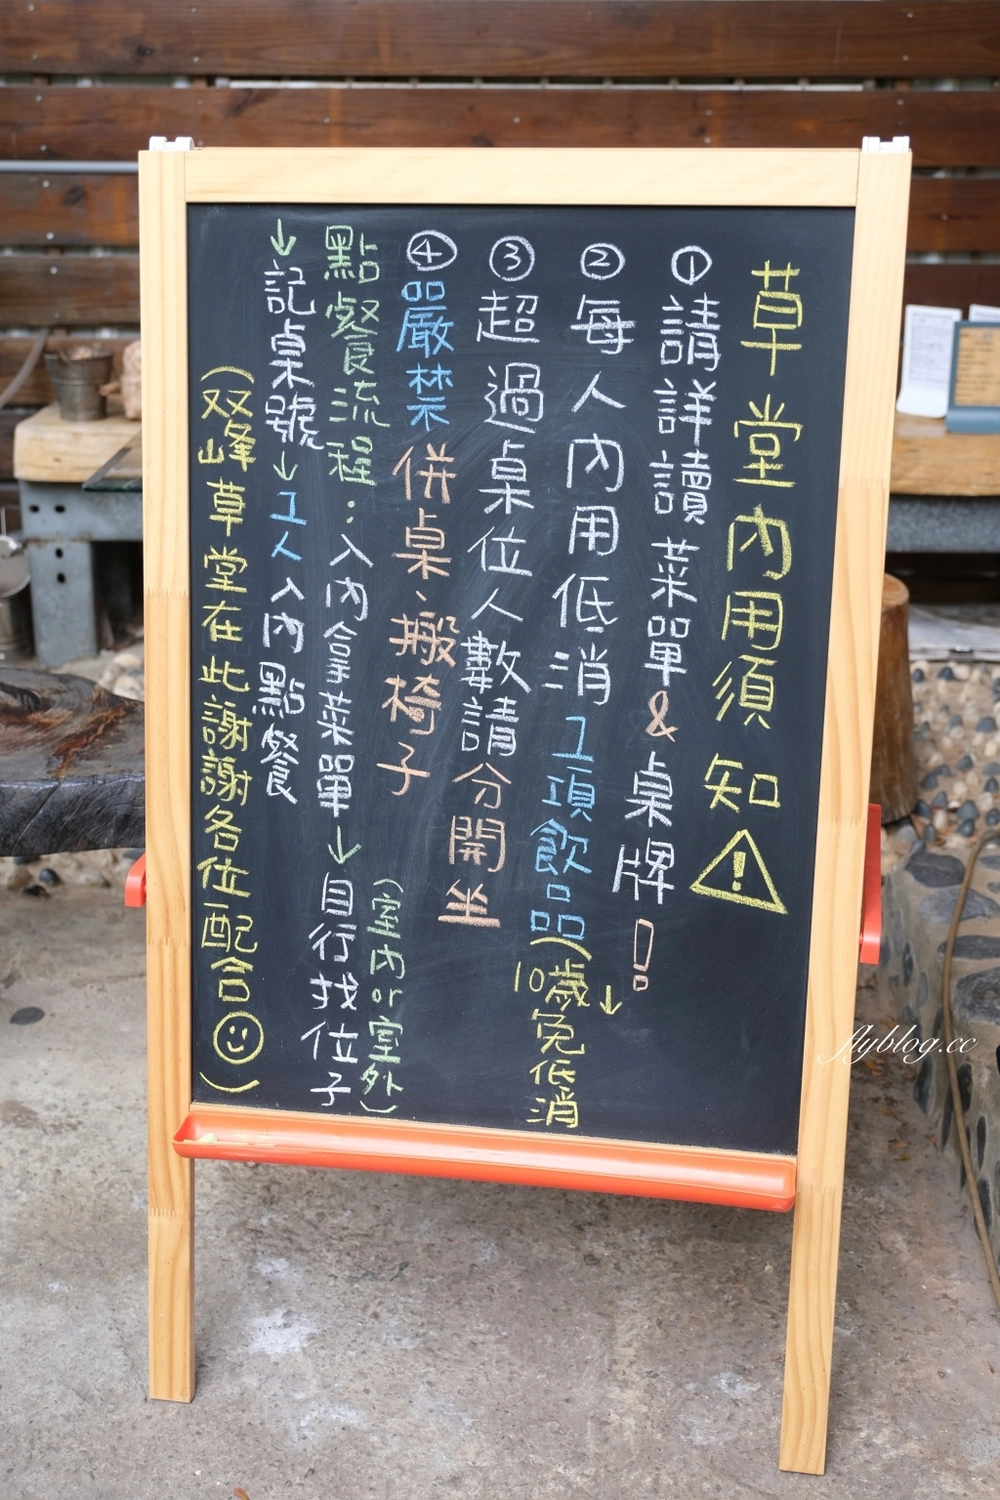 草堂內用須知
①請詳讀菜單&桌牌!
②每人內用低消1項飲品(10歲↓免低消
③超過桌位人數請分開坐
④嚴禁併桌、搬椅子
點餐流程:入內拿菜單↓自行找位子
(室內or室外)
↓記桌號↓1人入內點餐
(双峰草堂在此謝謝各位配合)
flyblog.cc